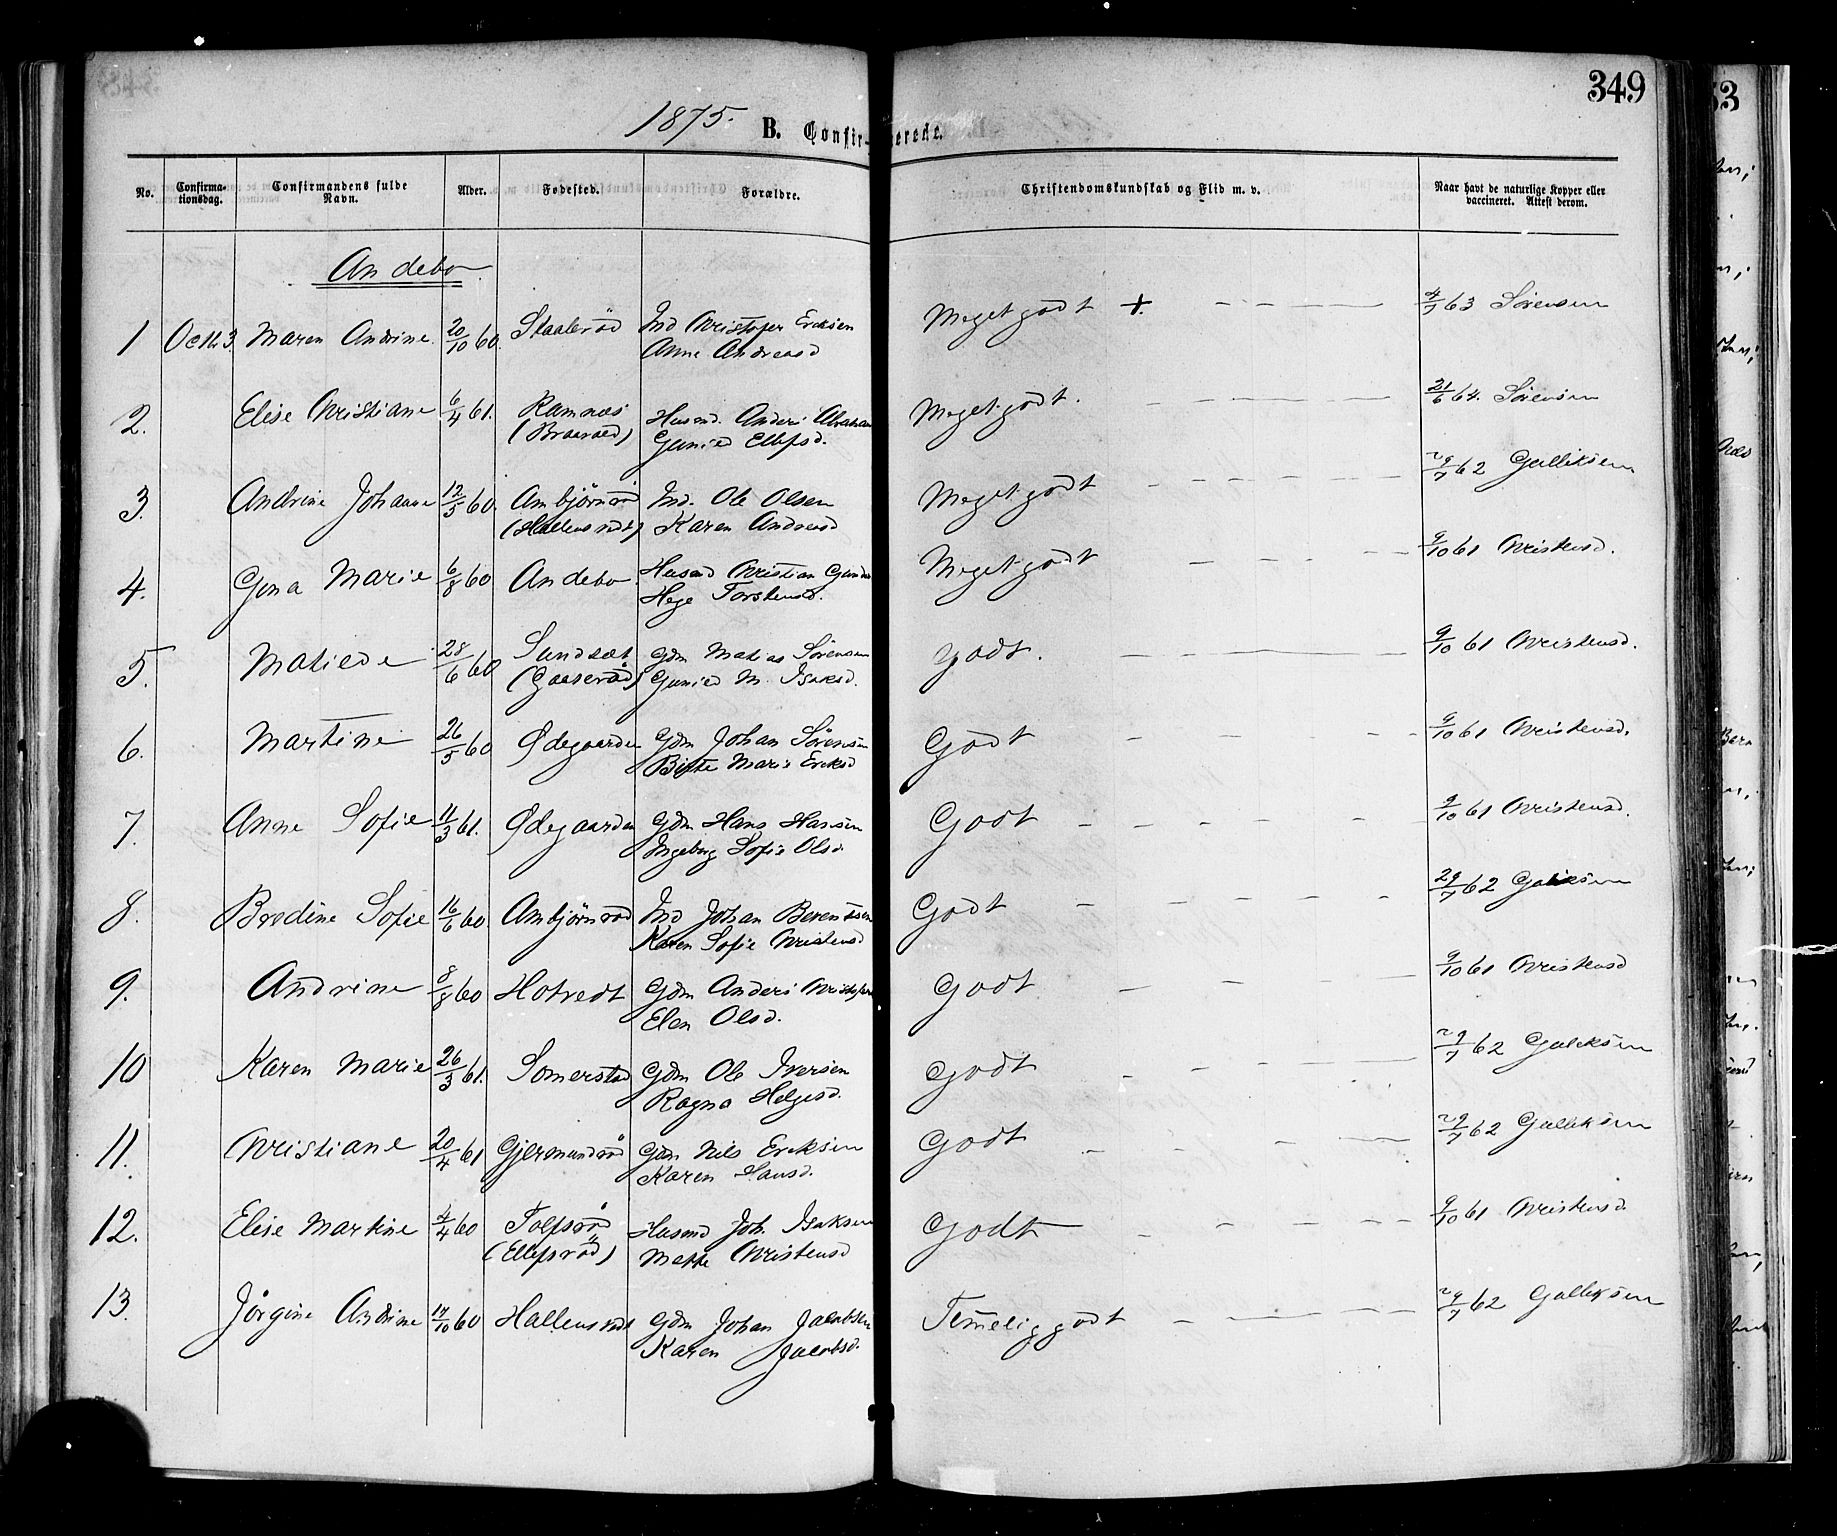 349
53
1875. B. Confir- erede.
No. Confirma-tionsdag. Confirmandens fulde Navn. Alder. Fødested. Forældre. Christendomskundskab og Flid m. v. Naar havt de naturlige Kopper eller vaccineret. Attest derom.
Andebo
1 Octb 3 Maren Andrine 20/10 60. Staalerød Ind Christofer Ericksen Meget godt +. 4/7 63 Sørensen
Anne Andreasd
2. Elise Christiane 6/4 61. Ramnæs Husmd. Anders Abraham Meget godt. 21/6 64. Sørensen
(Braaraed) Gunild Ellefsd.
3. Andrine Johanne 12/5 60. Ambjørnrød Ind. Ole Olsen Meget godt 29/7 62 Galliksen
(Hallensvedt) Karen Andreasd
4. Gina Marie 6/8 60 Andebo. Husmd Christian Gunder Meget godt 9/10 61 Christensd.
Hege Torstensd.
5. Matilde 28/6 60 Sundset Gdm Matias Sørensen godt. 9/10 61 Christensd.
(Gaaserød) Gunild M. Isaksd.
6. Martine 26/5 60 Ødegaarden Gdm Johan Sørensen Godt 9/10 61 Christensd.
Birte Marie Ericksd
7. Anne Sofie 11/3 61. Ødegaarden Gdm Hans Hansen Godt 9/10 61 Christensd.
Ingeborg Sofie Olsd.
8. Bredine Sofie 16/6 60 Ambjørnrød Ind Johan Berentsen Godt 29/7 62 Galliksen
Karen Sofie Christensd
9. Andrine 8/8 60 Hotvedt Gdm Anders Christofers Godt 9/10 61 Christensd
Elen Olsd.
10 Karen Marie 26/3 61. Somerstad Gdm Ole Iversen Godt 29/7 62 Galliksen
Ragna Helgesd.
11. Christiane 20/4 61 Gjermundrød Gdm Nils Ericksen Godt 29/7 62 Galliksen
Karen Hansd.
12. Elise Martine 4/4 60 Tolfsrød Husmd Joh. Isaksen Godt 9/10 61 Christensd.
(Ellefsrød) Mette Christensd
13. Jørgine Andrine 14/10 60 Hallensvedt Gdm Johan Jacobsen Temmelig godt 29/7 62 Galliksen
Karen Jacobsd.